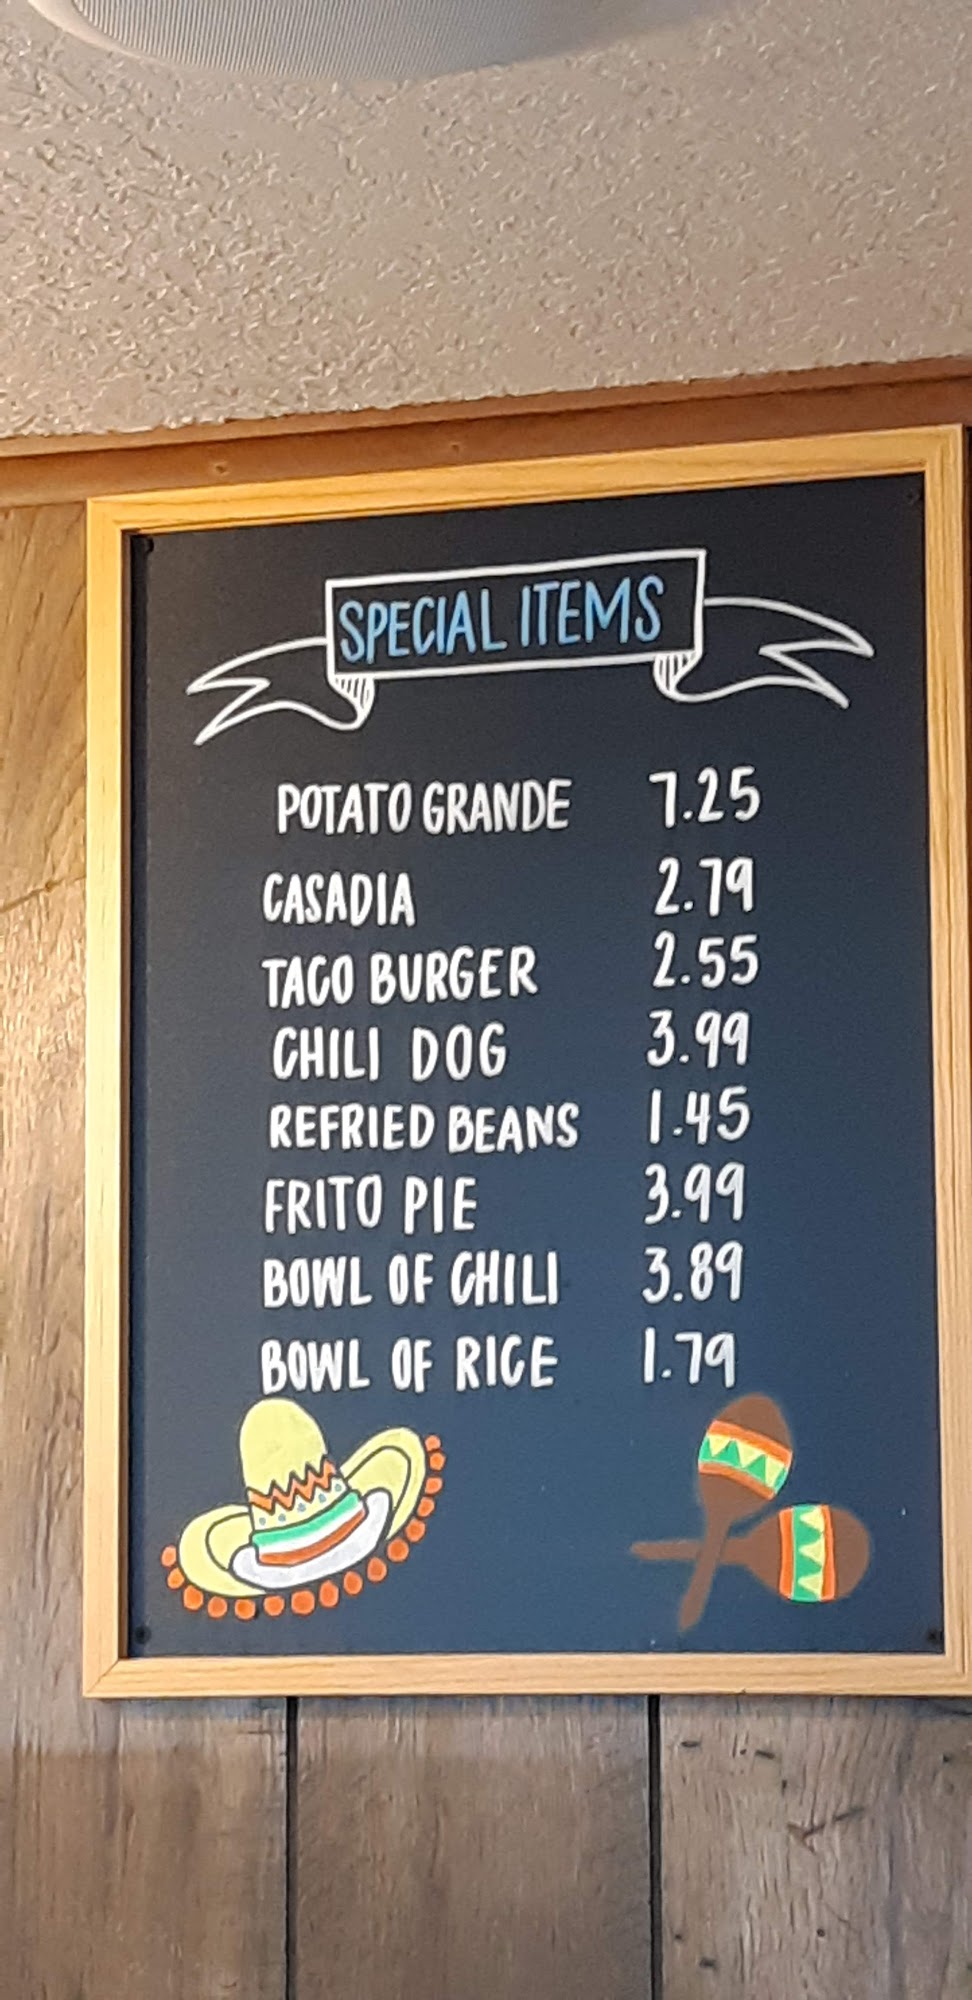 SPECIAL ITEMS
POTATO GRANDE 7.25
CASADIA 2.79
TACO BURGER 2.55
CHILI DOG 3.99
REFRIED BEANS 1.45
FRITO PIE 3.99
BOWL OF CHILI 3.89
BOWL OF RICE 1.79